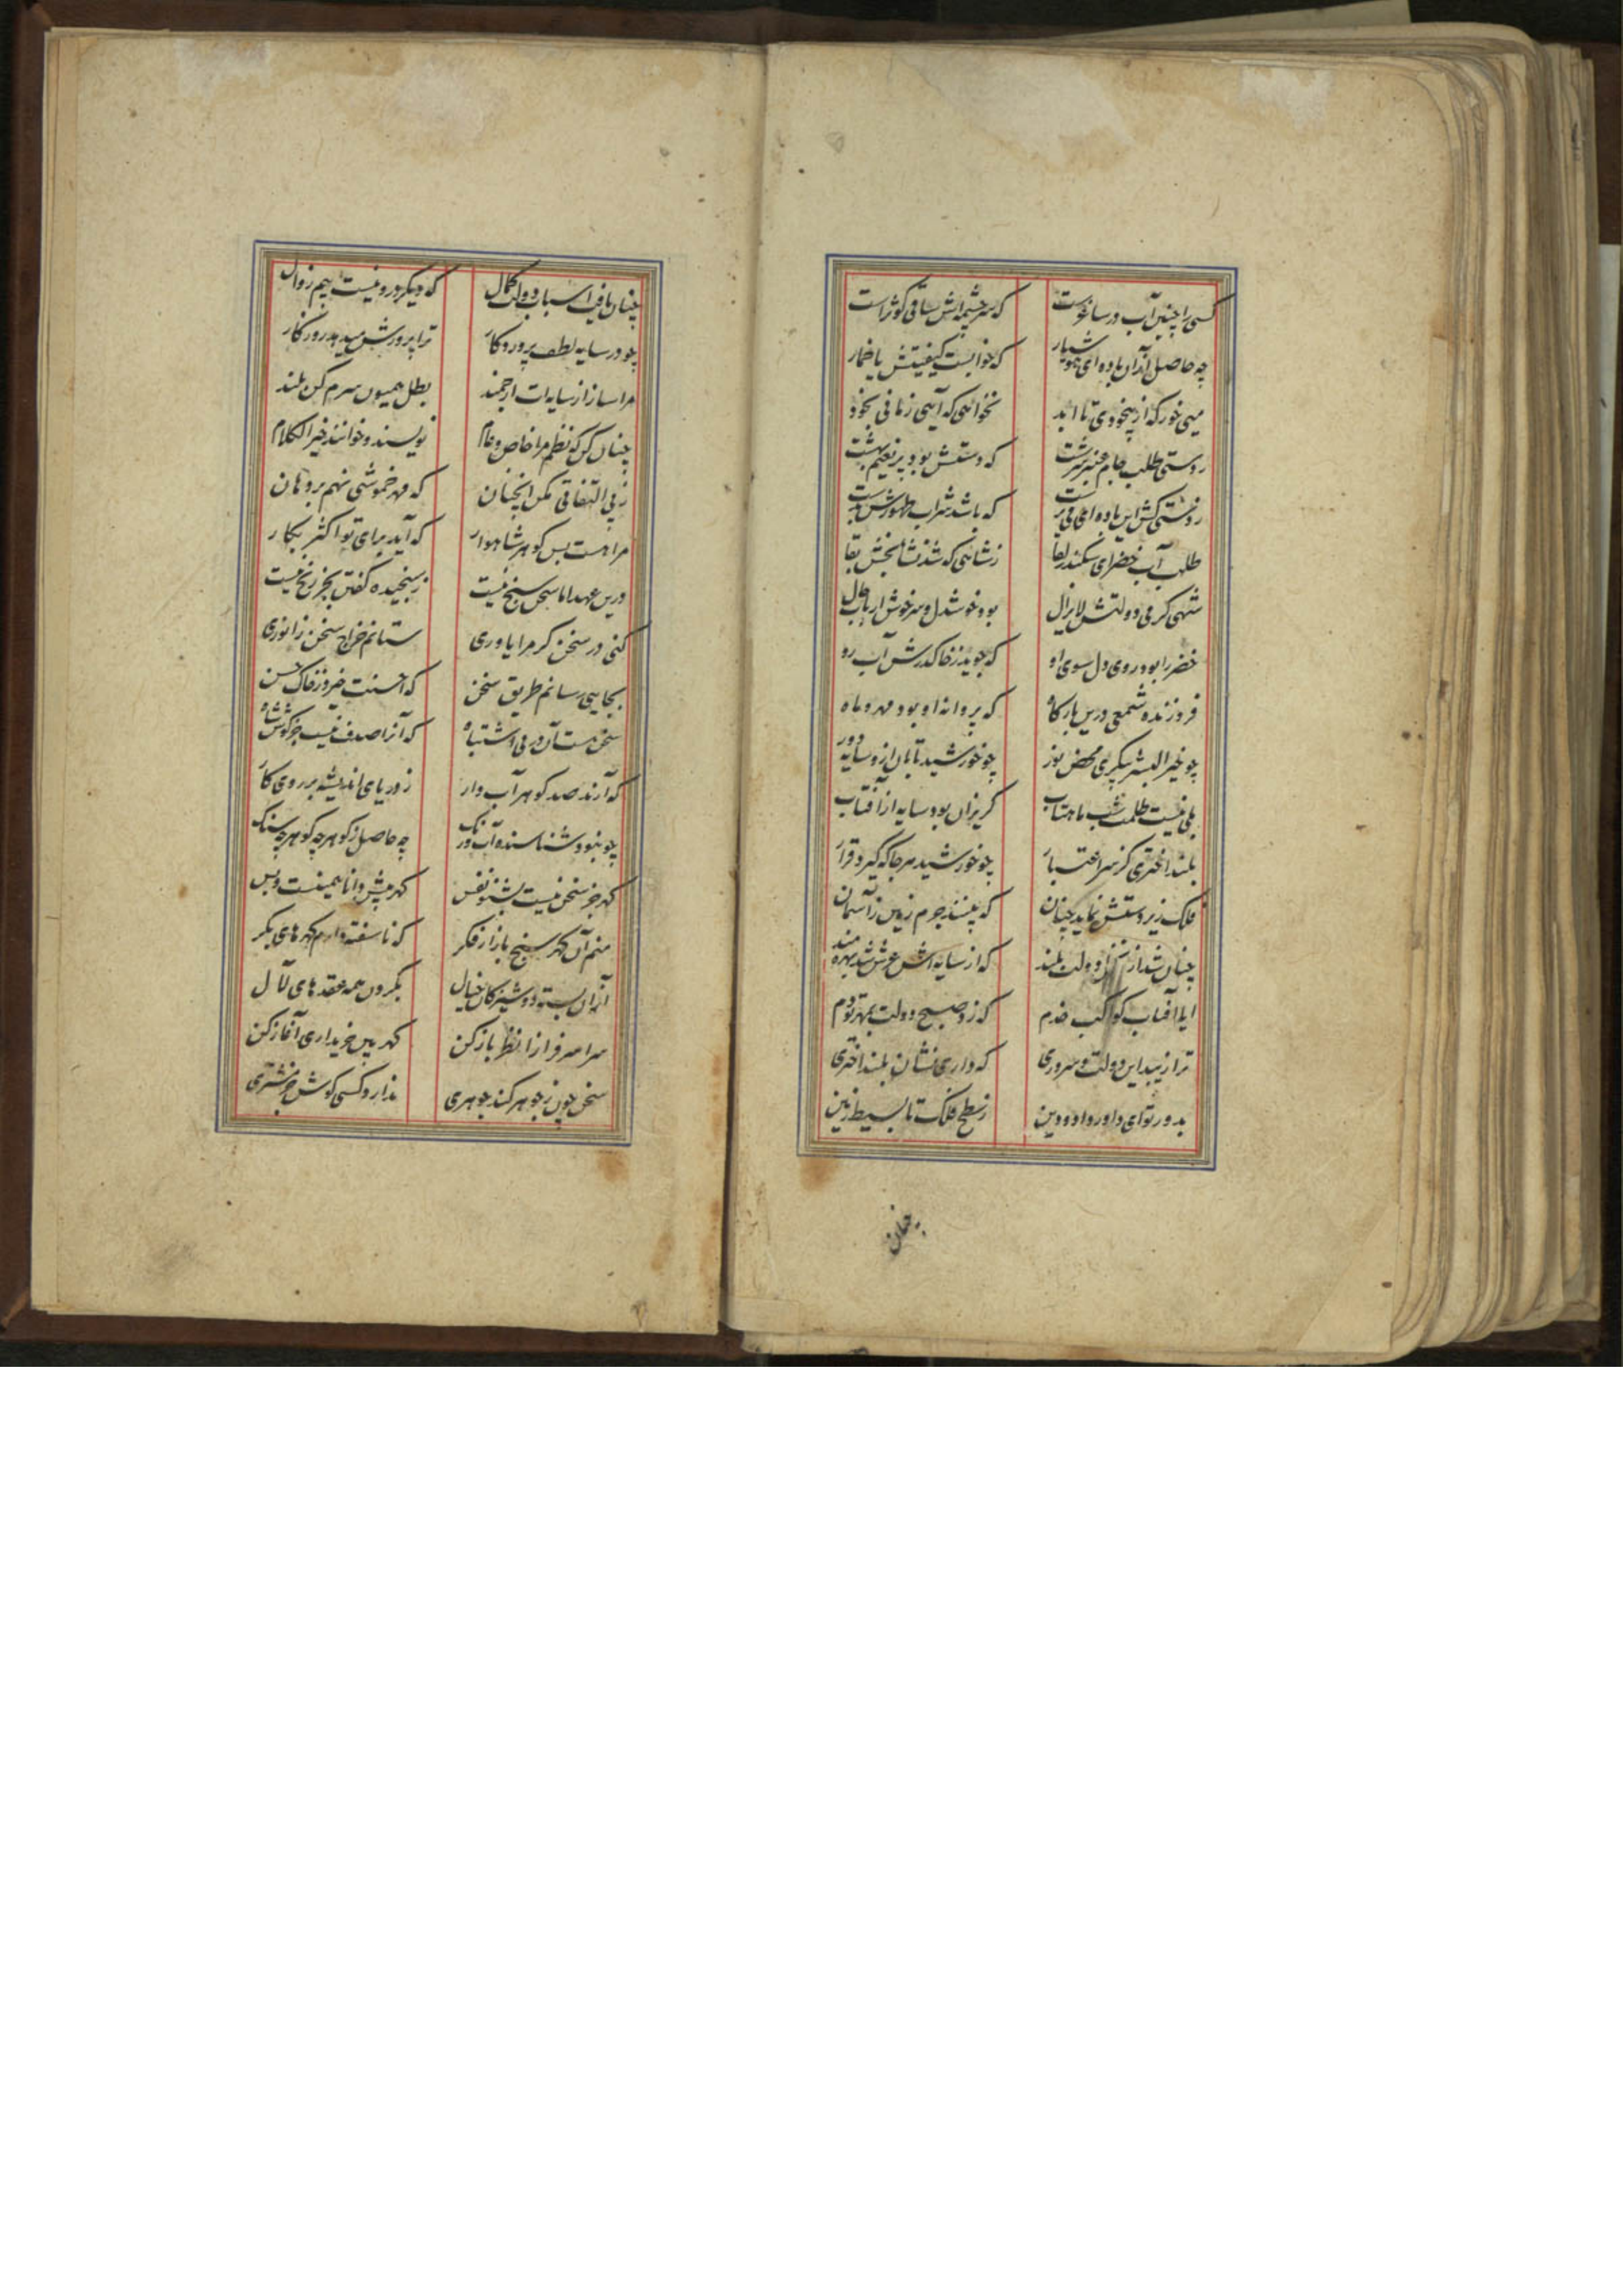 کسی را چنین آب در ساغرست که سرچشمه‌اش ساقی کوثراست
چه حاصل ازان باده ای هوشیار که خوابست کیفیتش یا خمار
میی خور که از بیخودی تا ابد نخواهی که آیی زمانی بخود
ز دستی طلب جام عنبر سرشت که دستش بود پر نعیم بهشت
ز دستی کش این باده ای می پرست که باشد شراب طهورش بدست
طلب آب خضر ای سکندر لقا ز شاهی که شد نشا بخش بقا
شهی کز می دولتش لایزال بود خوشدل و سرخوش ارباب حال
خضر را بود روی دل سوی او که جوید ز خاک درش آب رو
فروزنده شمعی درین بارکاه که پروانه او بود مهر و ماه
چو خیر البشر پیکری محض نور چو خورشید تابان ازو سایه دور
بلی نیست ظلمت شب ماهتاب کریزان بود سایه از آفتاب
بلند اختری کز سر اعتبار چو خورشید هر جا که گیرد قرار
فلک زیر دستش نماید چنان که بیننده جرم زمین ز آسمان
چنان شد از دولت بلند که از سایه اش عرش شد بهره مند
ایا آفتاب کواکب خدم که زد صبح دولت بمهر تو دم
ترا زیبد این دولت و سروری که داری نشان بلند اختری
بدور تو ای داور داد و دین ز سطح فلک تا بسیط زمین
چنان یافت اسباب دولت کمال که دیکر درو نیست بیم زوال
چو در سایه لطف پروردکار ترا پرورش میدهد روزکار
مرا ساز از سایه ات ارجمند بظل همیون سرم کن بلند
چنان کن که نظم مرا خاص و عام نویسند و خوانند خیر الکلام
ز بی التفاتی مکن انچنان که مهر خموشی نهم بر دهان
مرا هست بس کوهر شاهوار که آید برای تو اکثر بکار
درین عهد اما سخن سنج نیست ز سنجیده کفتن بجز رنج نیست
کنی در سخن کر مرا یاوری ستانم خراج سخن ز انوری
بجایی رسانم طریق سخن که احسنت خیزد ز خاک حسن
سخن هست آن در بی اشتباه که آنرا صدف نیست جز کوش شاه
که آرند صد کوهر آب دار ز دریای اندیشه بر روی کار
چو نبود شناسنده آب و رنک چه حاصل ز کوهر چه کوهر چه سنک
کهر جز سخن نیست بشنو نفس کهر پیش دانا همینست و بس
منم آن کهر سنج بازار فکر که ناسفته دارم کهرهای بکر
ازان بسته دوشیزکان خیال بکردن همه عقدهای لآل
سرا سرفرازا نظر باز کن کهر بین خریداری آغاز کن
سخن چون ز جوهر کند جوهری ندارد کسی کوش جز مشتری
چنان